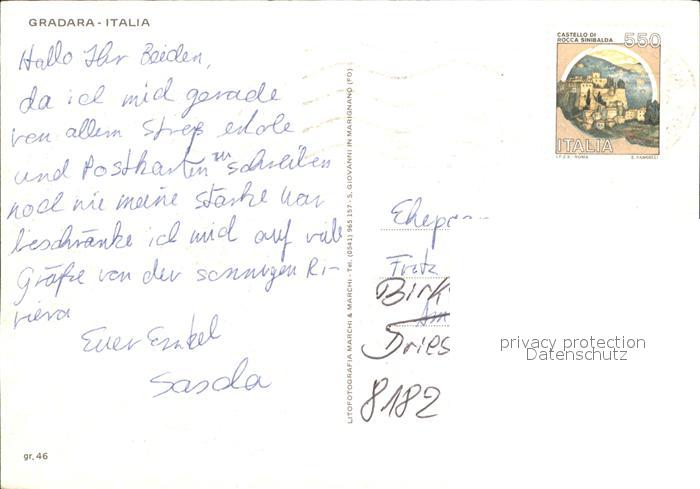 GRADARA - ITALIA
Hallo Ihr Beiden,
da ich mich gerade
von allem Streß erhole
und Postkarten zu schreiben
noch nie meine Stärke war
beschränke ich mich auf viele
Grüße von der sonnigen Ri-
viera
Euer Enkel
Sascha
gr. 46
LITOFOTOGRAFIA MARCHI & MARCHI - Tel. (0541) 965.157 - S. GIOVANNI IN MARIGNANO (FO)
CASTELLO DI
ROCCA SINIBALDA
550
ITALIA
I.P.Z.S. ROMA
Ehepa
Fritz
Birk
Am
Dries
8182
privacy protection
Datenschutz